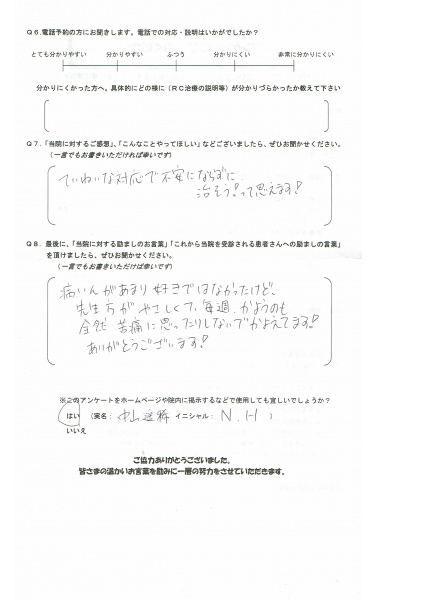 Q6.電話予約の方にお聞きします。電話での対応・説明はいかがでしたか？
とても分かりやすい 分かりやすい ふつう 分かりにくい 非常に分かりにくい
分かりにくかった方へ。具体的にどの様に（RC治療の説明等）が分かりづらかったか教えて下さい
Q7.「当院に対するご感想」、「こんなことやってほしい」などございましたら、ぜひお聞かせください。
（一言でもお書きいただければ幸いです）
ていねいな対応で不安にならずに
治そう!って思えます!
Q8.最後に、「当院に対する励ましのお言葉」「これから当院を受診される患者さんへの励ましの言葉」
を頂けましたら、ぜひお聞かせください。
（一言でもお書きいただけば幸いです）
病いんがあまり好きではなかったけど、
先生方がやさしくて、毎週、かようのも
全然苦痛に思ったりしないでかよえてます!
ありがとうございます!
※このアンケートをホームページや院内に掲示するなどで使用しても宜しいでしょうか？
はい （実名： 中山 イニシャル： N.H ）
いいえ
ご協力ありがとうございました。
皆さまの温かいお言葉を励みに一層の努力をさせていただきます。